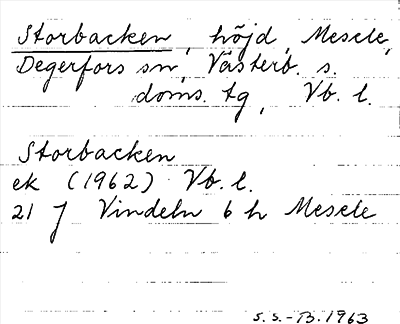 Storbacken, höjd, Mesele,
Degerfors sn, Västerb. s.
doms. tg, Vb. l.
Storbacken
ek (1962) Vb. l.
21 J Vindeln 6 h Mesele
S. S.-B. 1963